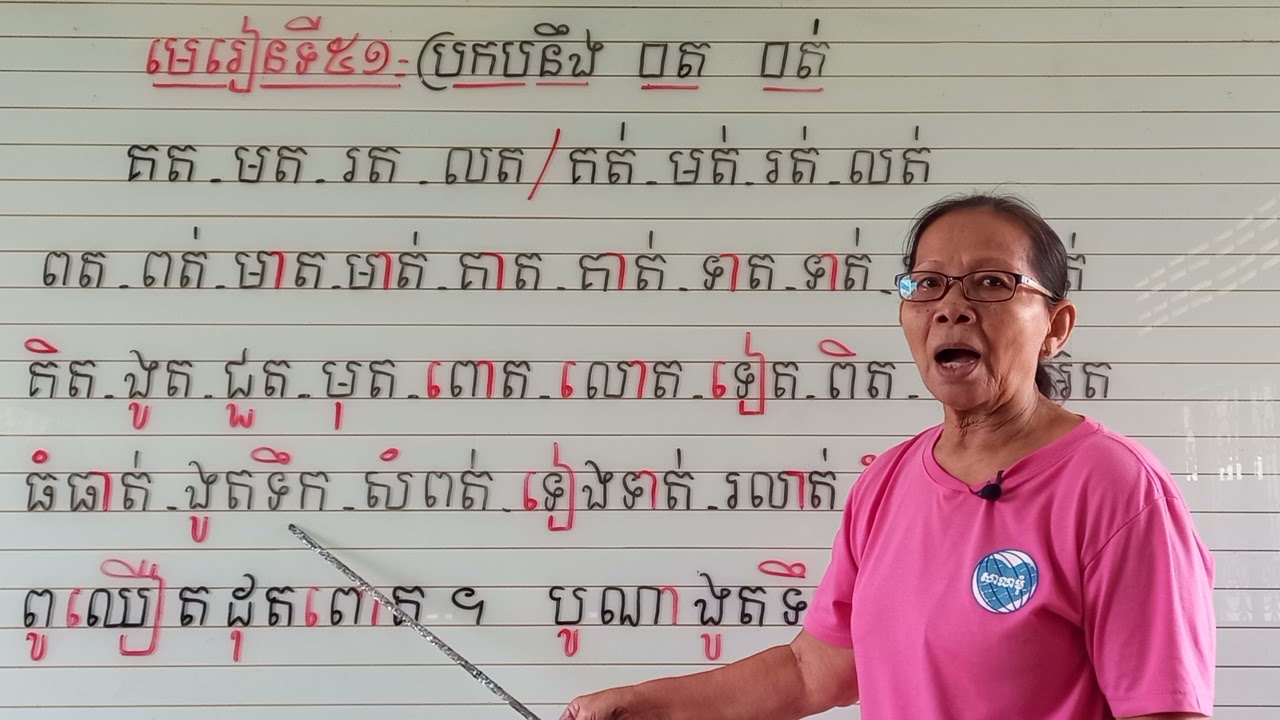 មេរៀនទី៥១-ប្រកបនឹង ០ត ០ត់
គត-មត-រត-លត/គត់-មត់-រត់-លត់
ពត-ពត់-មាត-មាត់-គាត-គាត់-ទាត-ទាត់-
គិត-ងូត-ជួត-មុត-ពោត-លោត-ទៀត-ពិត-
ធំធាត់-ងូតទឹក-សំពត់-ទៀងទាត់-រលាត់
ពូឈឿតដុតពោត ។ បូណាងូតទឹ
សាលាធំ